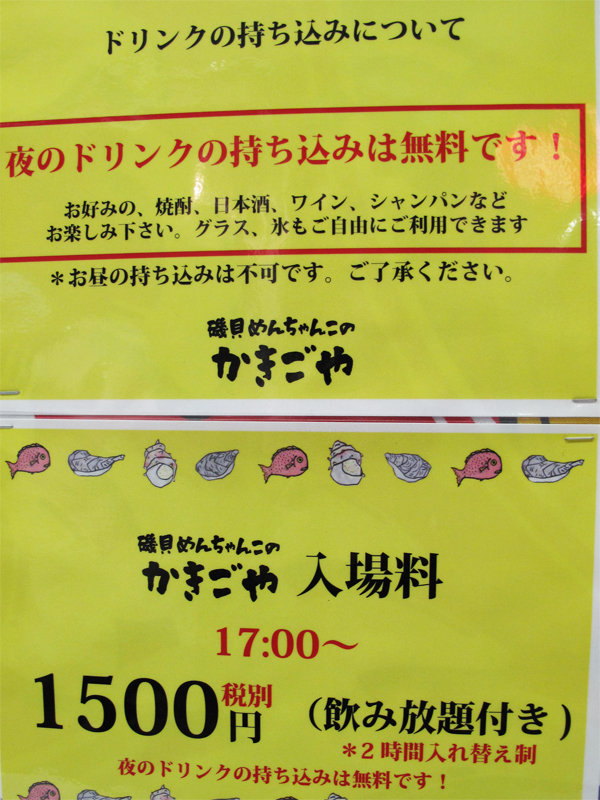 ドリンクの持ち込みについて
夜のドリンクの持ち込みは無料です！
お好みの、焼酎、日本酒、ワイン、シャンパンなど
お楽しみ下さい。グラス、氷もご自由にご利用できます
＊お昼の持ち込みは不可です。ご了承ください。
磯貝めんちゃんこの
かきごや
磯貝めんちゃんこの
かきごや 入場料
17:00～
1500円 税別 (飲み放題付き)
＊2時間入れ替え制
夜のドリンクの持ち込みは無料です！